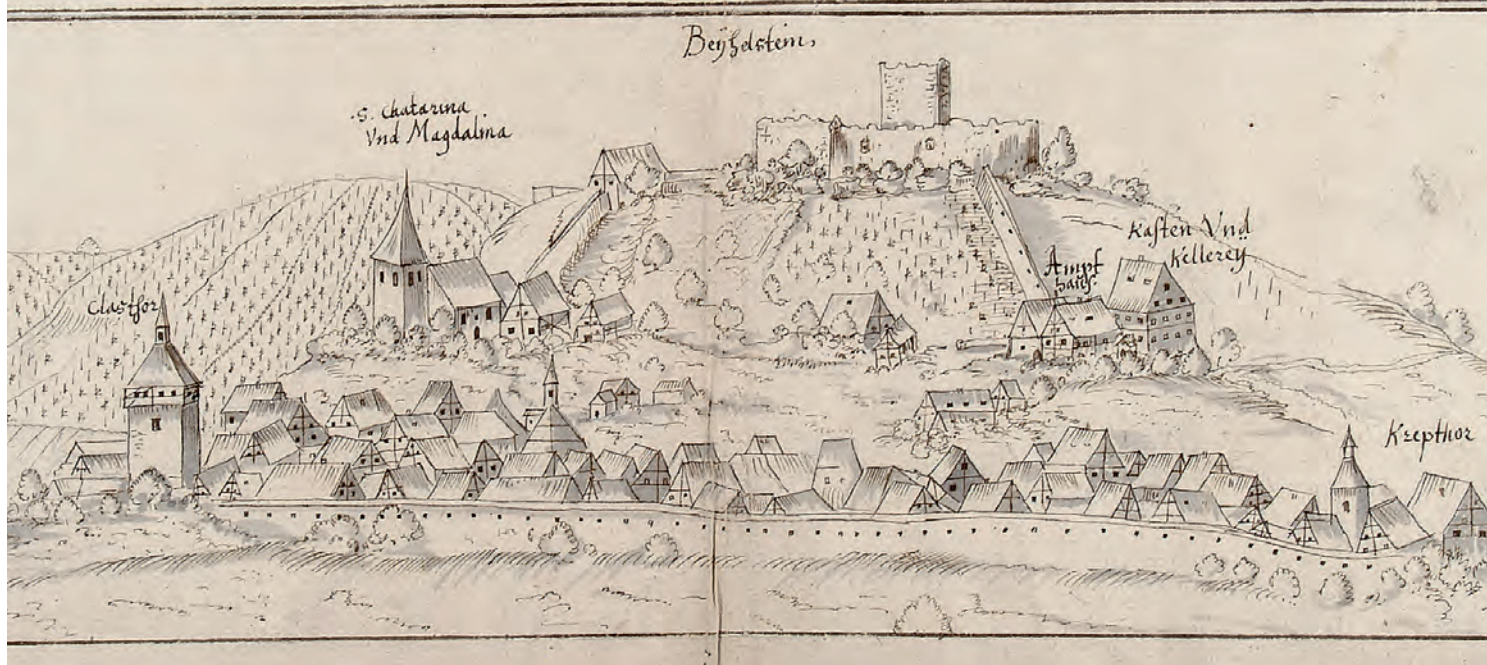 Beÿhelstein,
S. Chatarina
Vnd Magdalina
Clasthor
Ampt
hauß.
Kasten Vnd
Kellereÿ
Krepthor